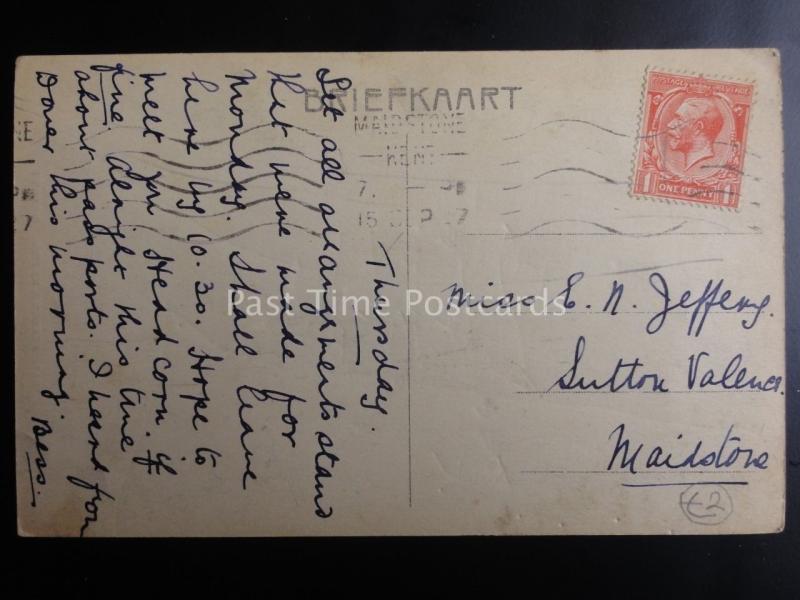 BRIEFKAART
MAIDSTONE
KENT
7. - PM
15 SEP 27
POSTAGE REVENUE
1 ONE PENNY 1
Thursday.
Let all arrangements stand
that were made for
Monday. Shall leave
here by 10.30. Hope to
meet you Headcorn if
fine. Alright this time
about passports. I heard from
Dover this morning. Bess.
Miss E. N. Jeffery.
Sutton Valence.
Maidstone
£2
Past Time Postcards